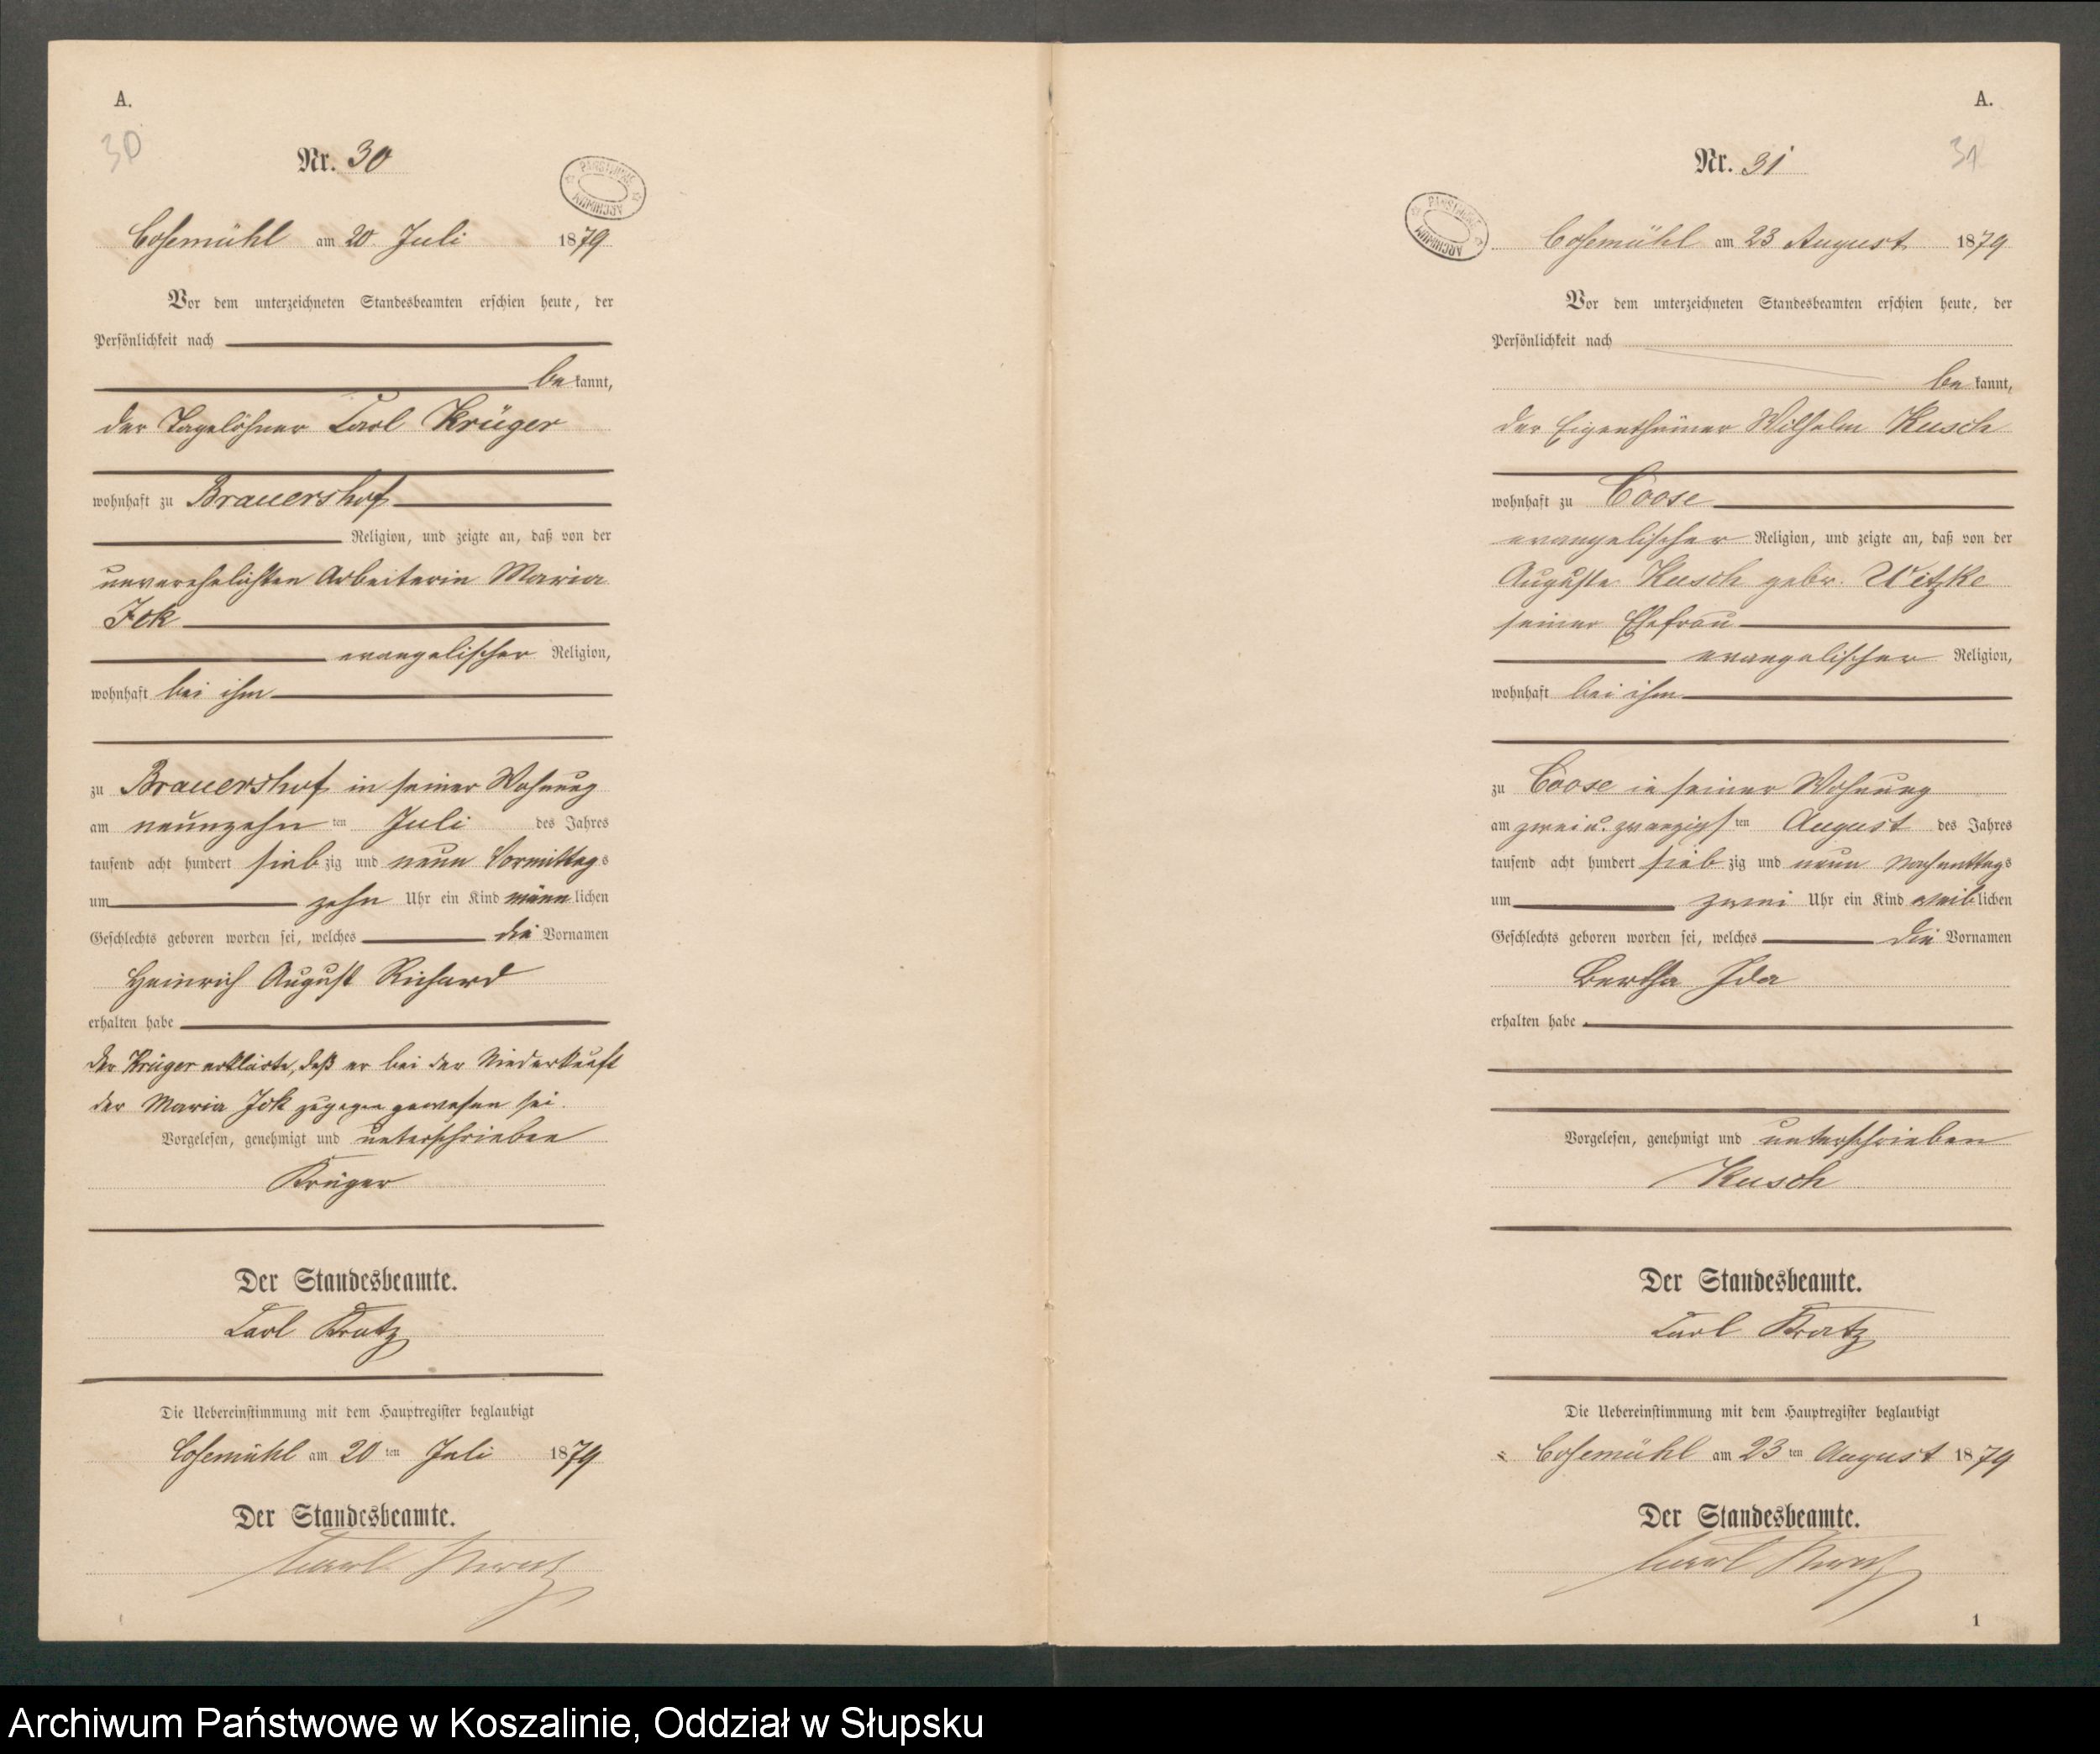 A.
30
Nr. 30
PAŃSTWOWE ARCHIWUM
Cosemühl am 20 Juli 1879
Vor dem unterzeichneten Standesbeamten erschien heute, der
Persönlichkeit nach
be kannt,
der Tagelöhner Carl Krüger
wohnhaft zu Brauershof
Religion, und zeigte an, daß von der
unverehelichten Arbeiterin Maria
Jck
evangelischer Religion,
wohnhaft bei ihm
zu Brauershof in seiner Wohnung
am neunzehn ten Juli des Jahres
tausend acht hundert sieb zig und neun Vormittags
um zehn Uhr ein Kind männ lichen
Geschlechts geboren worden sei, welches die Vornamen
Heinrich August Richard
erhalten habe
Der Krüger erklärte, daß er bei der Niederkunft
der Maria Jck zugegen gewesen sei.
Vorgelesen, genehmigt und unterschrieben
Krüger
Der Standesbeamte.
Carl Kratz
Die Uebereinstimmung mit dem Hauptregister beglaubigt
Cosemühl am 20 ten Juli 1879
Der Standesbeamte.
Carl Kratz
A.
31
Nr. 31
PAŃSTWOWE ARCHIWUM
Cosemühl am 23 August 1879
Vor dem unterzeichneten Standesbeamten erschien heute, der
Persönlichkeit nach
be kannt,
der Eigenthümer Wilhelm Kusch
wohnhaft zu Coose
evangelischer Religion, und zeigte an, daß von der
Auguste Kusch gebr. Witzke
seiner Ehefrau
evangelischer Religion,
wohnhaft bei ihm
zu Coose in seiner Wohnung
am zwei u. zwanzigs ten August des Jahres
tausend acht hundert sieb zig und neun Nachmittags
um zwei Uhr ein Kind weib lichen
Geschlechts geboren worden sei, welches die Vornamen
Bertha Ida
erhalten habe
Vorgelesen, genehmigt und unterschrieben
Kusch
Der Standesbeamte.
Carl Kratz
Die Uebereinstimmung mit dem Hauptregister beglaubigt
Cosemühl am 23 ten August 1879
Der Standesbeamte.
Carl Kratz
1
Archiwum Państwowe w Koszalinie, Oddział w Słupsku